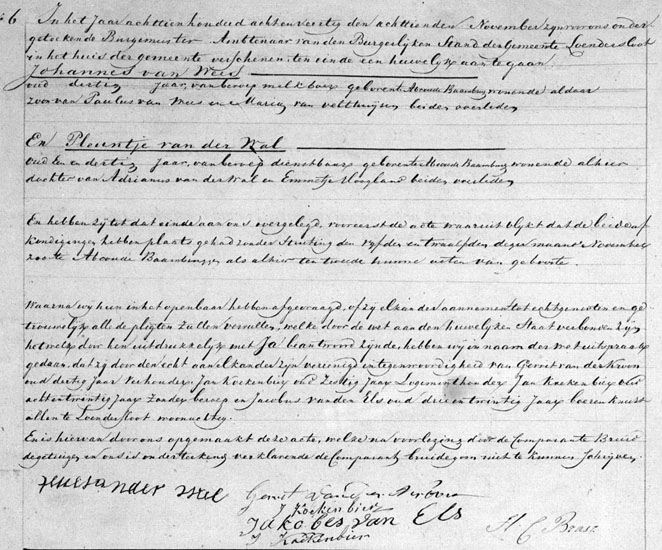 № 6 In het Jaar achttienhonderd achtenveertig den achttienden November zijn voor ons onder
getekende Burgemeester Ambtenaar van den Burgerlijken Stand der Gemeente Loendersloot
in het huis der gemeente verschenen, ten einde een huwelijk aan te gaan.
Johannes van Wees
oud dertig jaar, van beroep melkboer geboren te Abcoude Baambrug wonende aldaar
zoon van Paulus van Wees en Maria van Velthuijsen beiden overleden
En Pleuntje van der Wal
oud een en dertig jaar, van beroep dienstbaar geboren te Abcoude Baambrug wonende alhier
dochter van Adrianus van der Wal en Emmetje Hoogland beiden overleden
En hebben zij tot dat einde aan ons overgelegd, vooreerst de acte waaruit blijkt dat de beide af
kondigingen hebben plaats gehad zonder Stuiting den vijfden en twaalfden dezer maand November
zoo te Abcoude Baambrugge, als alhier ten tweede hunne acten van geboorte.
Waarna wij hun in het openbaar hebben afgevraagd, of zij elkander aannemen tot echtgenooten en ge
trouwelijk all de pligten zullen vervullen, welke door de wet aan den huwelijken Staat verbonden zijn
het welk door hen uitdrukkelijk met Ja beantwoord zijnde, hebben wij in naam der wet uitspraak
gedaan, dat zij door den echt aan elkander zijn vereenigd in tegenwoordigheid van Gerret van der Kroon
oud dertig Jaar Jan Koekenbier oud Zestig Jaar Logementhouder Jan Koekenbier oud
achtentwintig Jaar Zonder beroep en Jacobus van den Els oud drieentwintig Jaar boeren knecht
allen te Loendersloot woonachtig.
En is hiervan door ons opgemaakt deze acte, welke na voorlezing door de Comparante Bruid
en ons is onderteekend verklarende de Comparant bruidegom niet te kunnen Schrijven.
van der Wal
Gerret van der
J Koekenbier
Jakobes van Els
J Koekenbier
H C